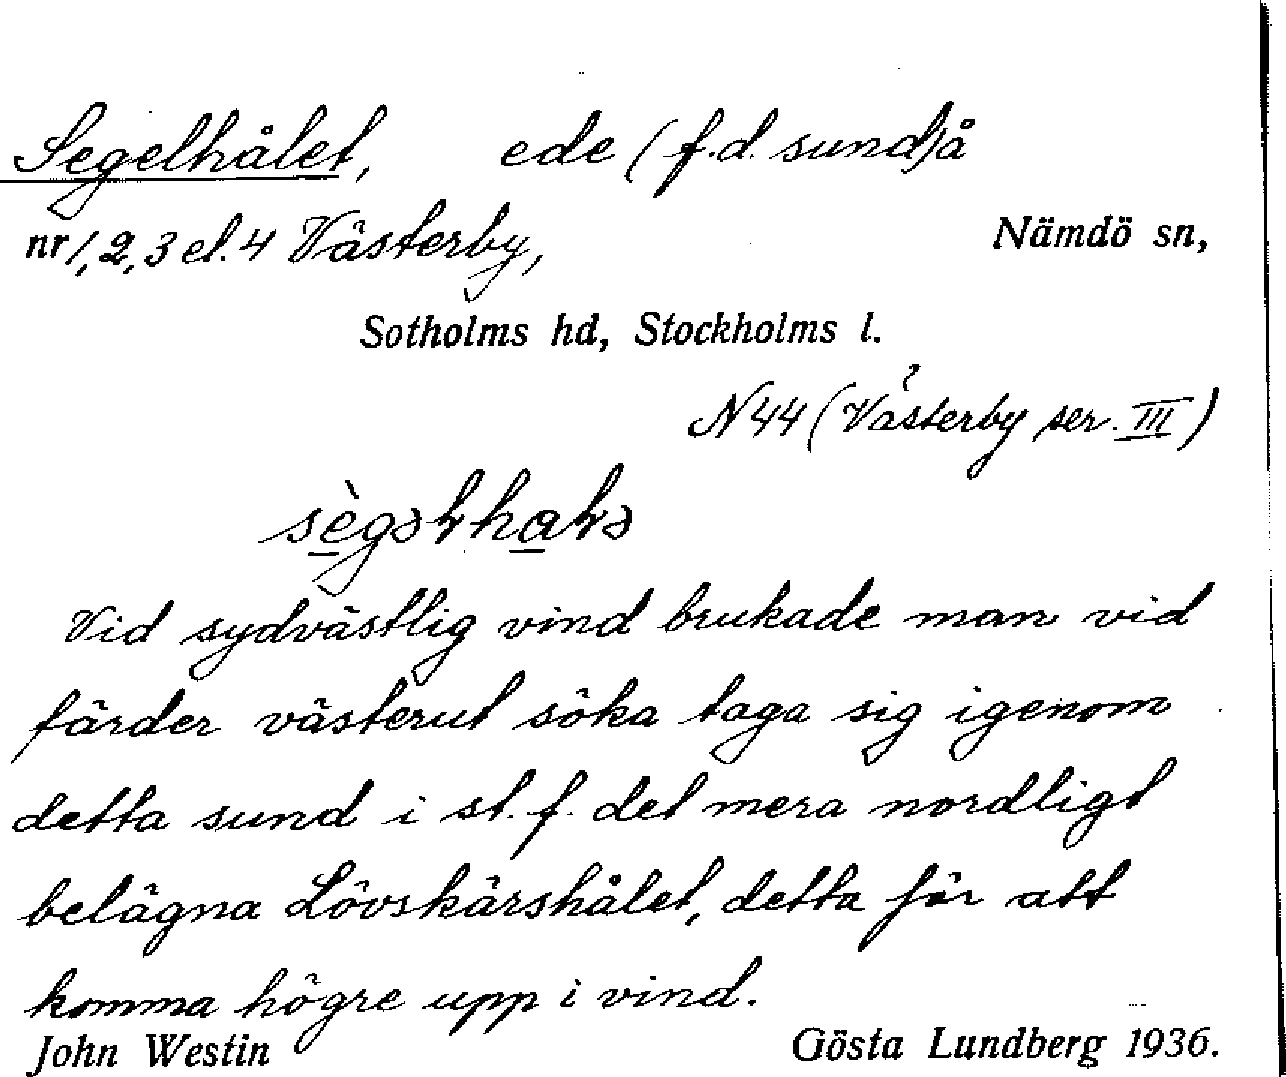 Segelhålet, ede (f.d. sund) å
nr 1, 2, 3 el. 4 Västerby, Nämdö sn,
Sotholms hd, Stockholms l.
?
N 44 (Västerby ser. III)
sègəɫhaɫə
Vid sydvästlig vind brukade man vid
färder västerut söka taga sig igenom
detta sund i st. f. det mera nordligt
belägna Lövskärshålet, detta för att
komma högre upp i vind.
John Westin Gösta Lundberg 1936.